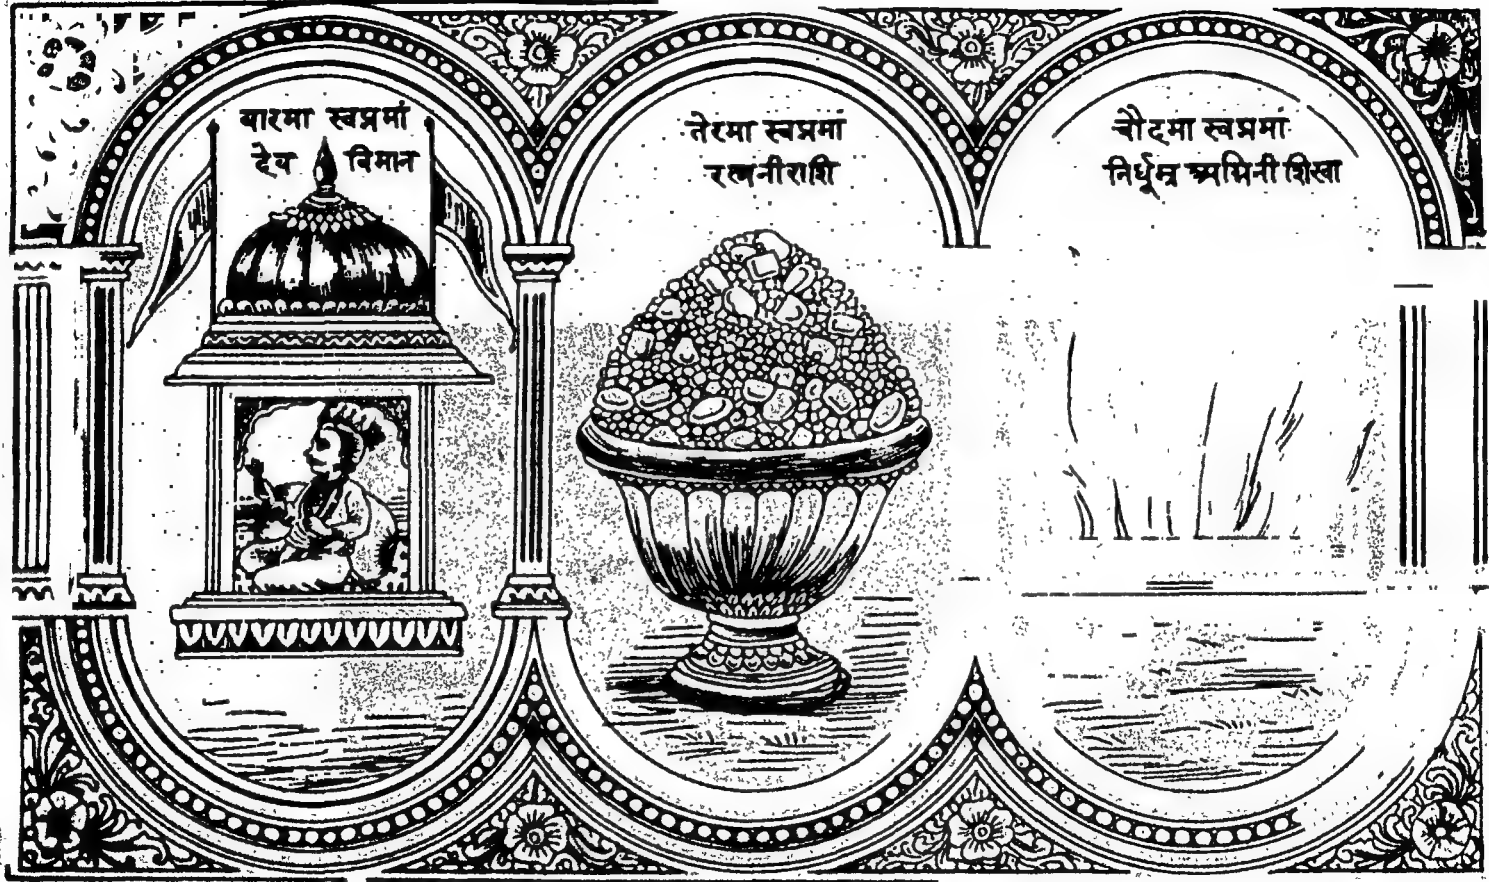 बारमा स्वप्नमां
देव विमान
तेरमा स्वप्नमां
रत्ननी राशि
चौदमा स्वप्नमां
निर्धूम्र अग्निनी शिखा